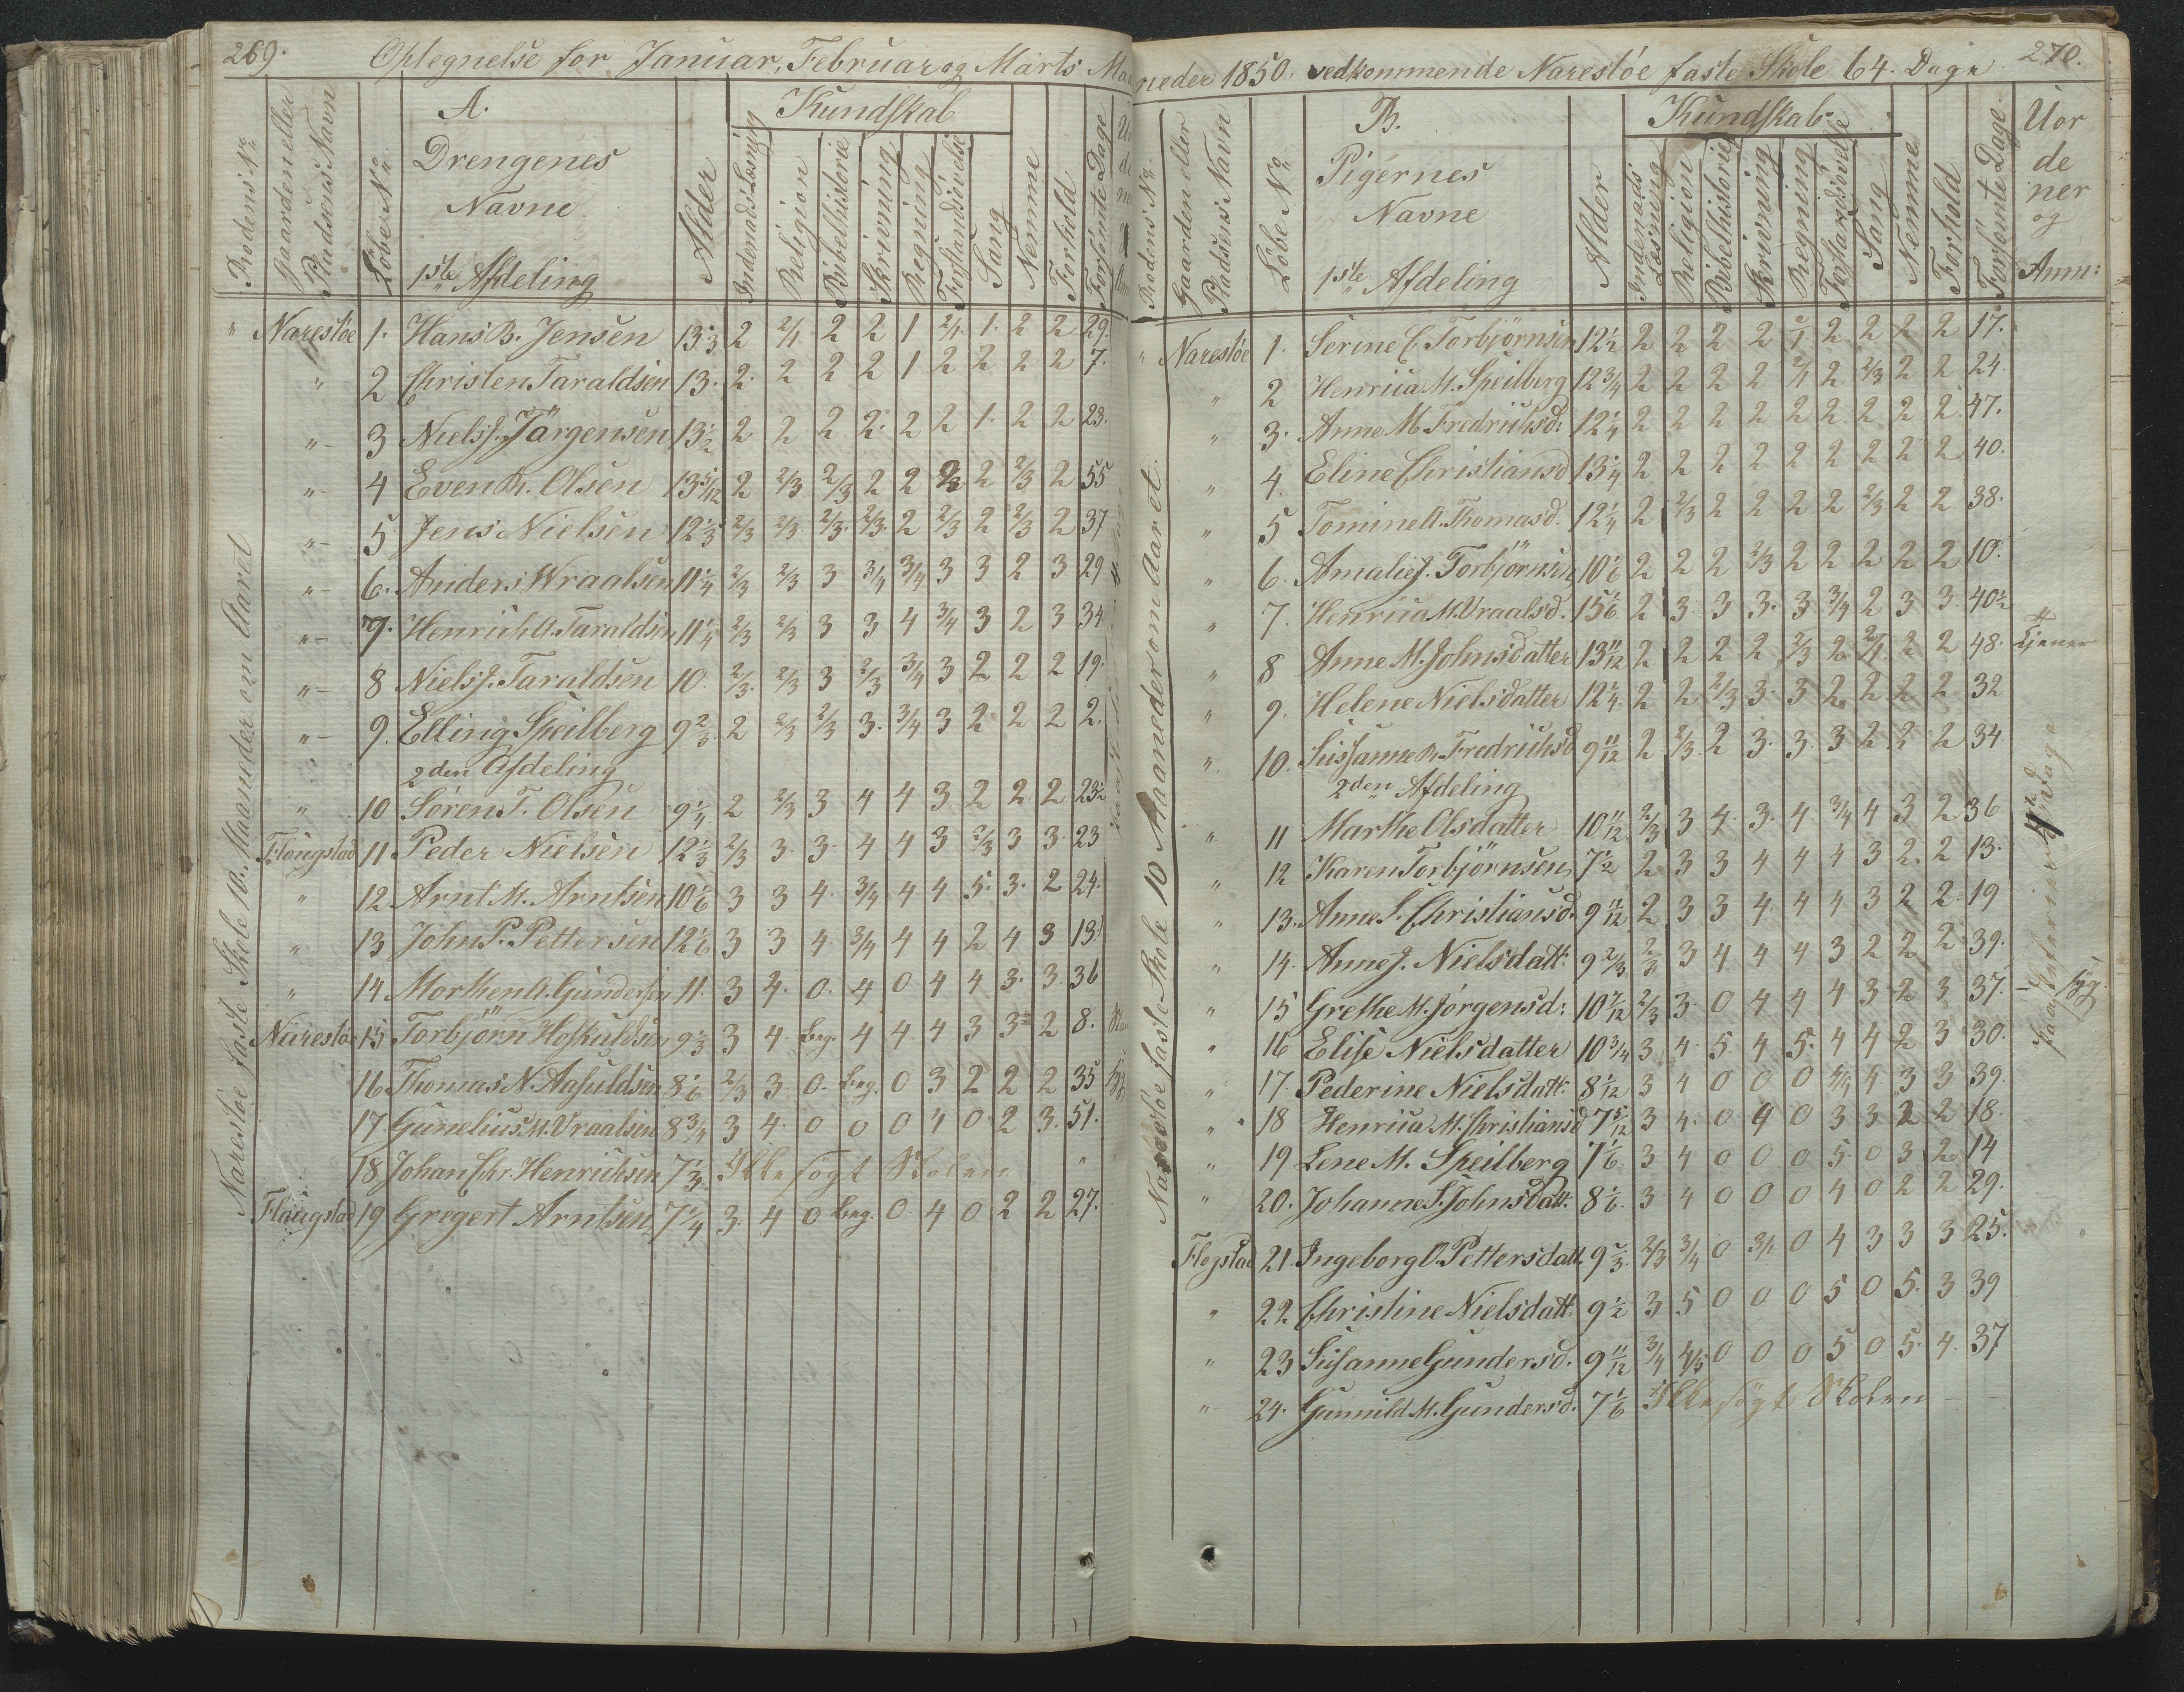 269.
Optegnelse for Januar, Februar og Marts Maa
Rodens No
Gaardens eller Pladsens Navn
Löbe No
A.
Drengenes
Navne
1ste Afdeling
Alder
Kundskab
Indenadslæsning
Religion
Bibelhistorie
Skrivning
Regning
Forstandsövelse
Sang
Nemme
Forhold
Forsömte Dage
Narestöe faste Skole 10. Maaneder om Aaret
" Narestöe 1. Hans B. Jensen 13 1/3 2 2/1 2 2 1 2/1 1. 2 2 29.
" 2 Christen Taraldsen 13. 2. 2 2 2 1 2 2 2 2 7.
" 3 Niels J. Jörgensen 13 1/2 2 2 2 2. 2 2 1. 2 2 23.
" 4 Even R. Olsen 13 5/12 2 2/3 2/3 2 2 2/3 2 2/3 2 55
" 5 Jens Nielsen 12 1/3 2/3 2/3 2/3. 2/3. 2 2/3 2 2/3 2 37
" 6. Anders Wraalsen 11 1/4 2/3 2/3 3 3/4 3/4 3 3 2 3 29
" 7. Henrich A. Taraldsen 11 1/4 2/3 2/3 3 3 4 3/4 3 2 3 34
" 8 Niels J. Taraldsen 10. 2/3. 2/3 3 2/3 3/4 3 2 2 2 19.
" 9. Elling Speilberg 9 2/3. 2 2/3 2/3 3. 3/4 3 2 2 2 2.
2den Afdeling
" 10 Sören T. Olsen 9 1/4 2 2/3 3 4 4 3 2 2 2 23 1/2
Flaugstad 11 Peder Nielsen 12 1/3 2/3 3. 3. 4 4 3 2/3 3 3. 23
" 12 Arnt M. Arntsen 10 1/6 3 3 4. 3/4 4 4 5. 3. 2 24.
" 13 John P. Pettersen 12 1/6 3 3 4. 3/4 4 4 2 4 3 13.
" 14 Morthen A. Gundersen 11. 3 4. 0. 4 0 4 4 3. 3. 36
Narestöe 15 Torbjörn Hoskuldsen 9 1/3 3 4. Beg. 4 4. 4 3 3 2 8.
16 Thomas N. Aasuldsen 8 1/6 2/3 3. 0. Beg. 0 3 2 2 2 35
17 Gunelius M. Vraalsen 8 3/4 3 4. 0 0 0 4 0. 2 3. 51.
18 Johan Chr. Henrichsen 7 1/3. Ikke sögt Skolen "
Flaugstad 19 Gregert Arntsen 7 1/4 3. 4 0 Beg. 0 4 0 2 2 27.
neder 1850. vedkommende Narestöe faste Skole 64. Dage
270.
Rodens No.
Gaarden eller Pladsens Navn
Löbe No
B.
Pigernes
Navne
1ste Afdeling
Alder
Kundskab
Indenads Læsning
Religion
Bibelhistorie
Skrivning
Regning
Forstandsövelse
Sang
Nemme
Forhold
Forsömte Dage
Uor
de
ner
og
Anm:
Narestöe faste Skole 10 Maaneder om Aaret.
" Narestöe 1. Serine C. Torbjörnsen 12 1/2 2 2 2 2 2/1 2 2 2 2 17.
" 2 Henrica M. Speilberg 12 3/4 2 2 2 2 2/1 2 2/3 2 2 24.
" 3. Anne M. Fredrichsd: 12 1/4 2 2 2 2 2 2 2 2 2. 47.
" 4. Eline Christiansd 13 1/4 2 2 2 2 2 2 2 2 2 40.
" 5 Tomine A. Thomasd. 12 1/4 2 2/3 2 2 2 2 2/3 2 2 38.
" 6. Amalie J. Torbjörnsen 10 1/6 2 2 2 2/3 2 2 2 2 2 10.
" 7. Henrica M. Vraalsd. 15 1/6 2 3. 3 3. 3 3/4 2 3 3. 40 1/2
" 8 Anne M. Johnsdatter 13 11/12 2 2 2 2 2/3 2 2/1 2 2 48. tjener
" 9. Helene Nielsdatter 12 1/4. 2 2 2/3 3. 3 2 2 2 2 32
" 10. Sussanne R. Fredrichsd 9 11/12 2 2/3. 2 3. 3. 3 2 2 2 34
2den Afdeling
" 11 Marthe Olsdatter 10 11/12 2/3 3 4. 3. 4. 3/4 4 3 2 36
" 12 Karen Torbjörnsen 7 1/2 2 3 3 4 4 4 3 2. 2 13.
" 13. Anne S. Christiansd. 9 11/12 2 3 3 4. 4 4 3 2 2 19
" 14. Anne J. Nielsdatt. 9 2/3 2/3 3 4 4 4 3 2 2 2 39.
" 15 Grethe M. Jörgensd: 10 7/12 2/3 3. 0 4 4 4 3 2 3 37.
" 16 Elise Nielsdatter 10 3/4 3 4. 5. 4 5. 4 4 2 3 30.
" 17. Pederine Nielsdatt: 8 1/12 3 4 0 0 0 4/4 4 3 3 39.
" 18 Henrica M. Christiansd 7 5/12 3 4. 0 4 0 3 3 2 2 18.
" 19 Lene M. Speilberg 7 1/6. 3 4 0 0 0 5. 0 3 2 14
" 20. Johanne S. Johnsdatt. 8 1/6. 3 4 0 0 0 4 0 2 2 29.
Flogstad 21. Ingeborg O. Pettersdatt. 9 2/3. 2/3 3/4 0 3/4 0 4 3 3 3 25.
" 22. Christine Nielsdatt. 9 1/2 3 5 0 0 0 5 0 5. 3 39
" 23 Susanne Gundersd. 9 11/12 3/4 4/5 0 0 0 5. 0 5. 4. 37
" 24. Gunnild M. Gundersd. 7 1/6 Ikke sögt Skolen